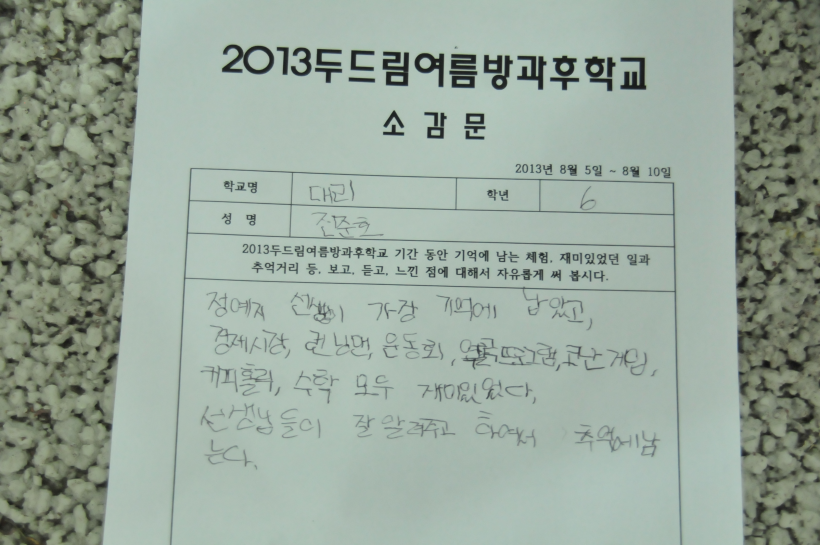 2013두드림여름방과후학교
소감문
2013년 8월 5일 ~ 8월 10일
학교명 대리 학년 6
성 명 전준호
2013두드림여름방과후학교 기간 동안 기억에 남는 체험, 재미있었던 일과
추억거리 등, 보고, 듣고, 느낀 점에 대해서 자유롭게 써 봅시다.
정예지 선생이 가장 기억에 남았고,
경제시장, 운동회,
수학 모두 재미있었다,
선생님들이 잘 알려주고 하여서 추억에남
는다.